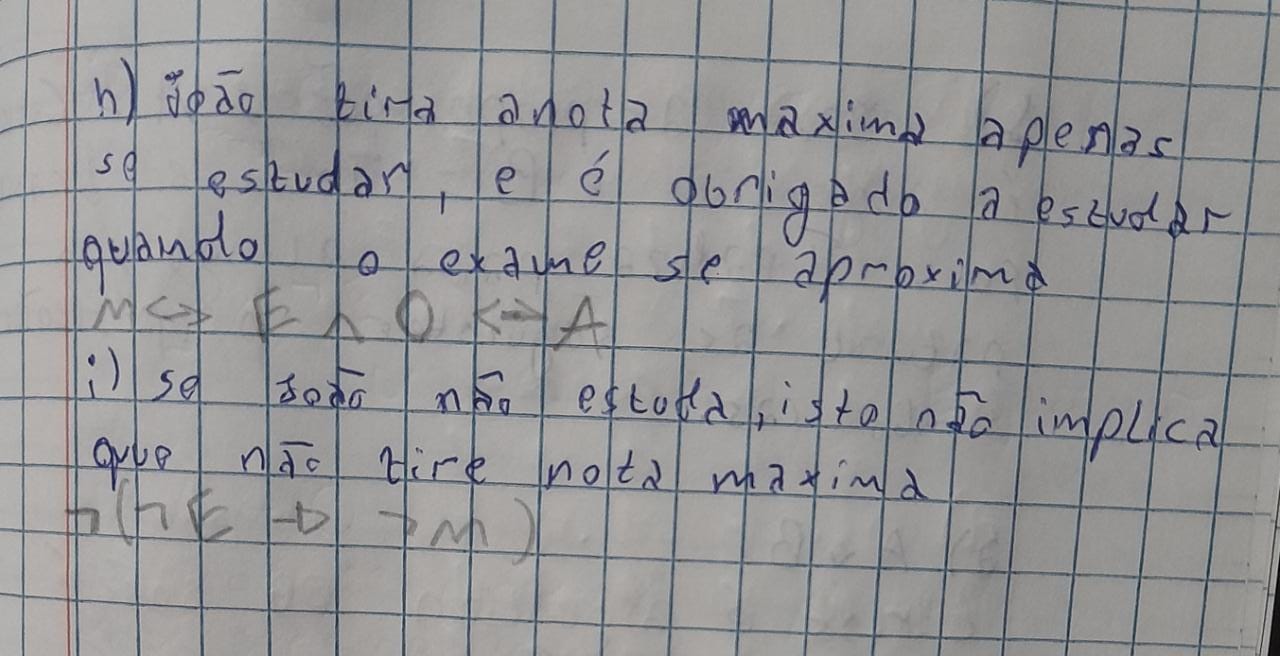 h) João tira a nota maxima apenas
se estudar, e é obrigado a estudar
quando o exame se aproxima
M <-> E ∧ O <-> A
i) se João não estuda, isto não implica
que não tire nota maxima
¬(¬E -> ¬M)